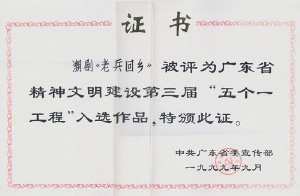 证书
潮剧《老兵回乡》被评为广东省
精神文明建设第三届“五个一
工程”入选作品,特颁此证。
中共广东省委宣传部
一九九九年九月